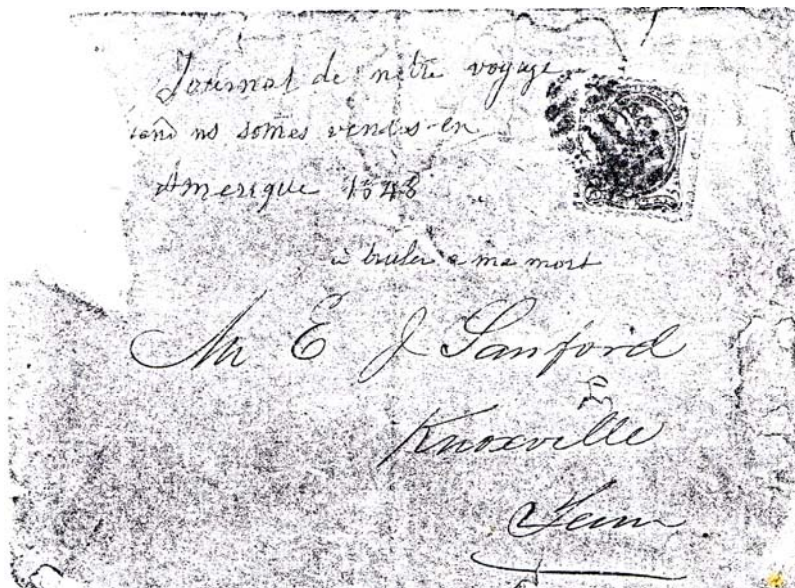 Journal de notre voyage
and ns somes venus en
Amerique 1848
à bruler a ma mort
Mr E J Sanford
Knoxville
Tenn